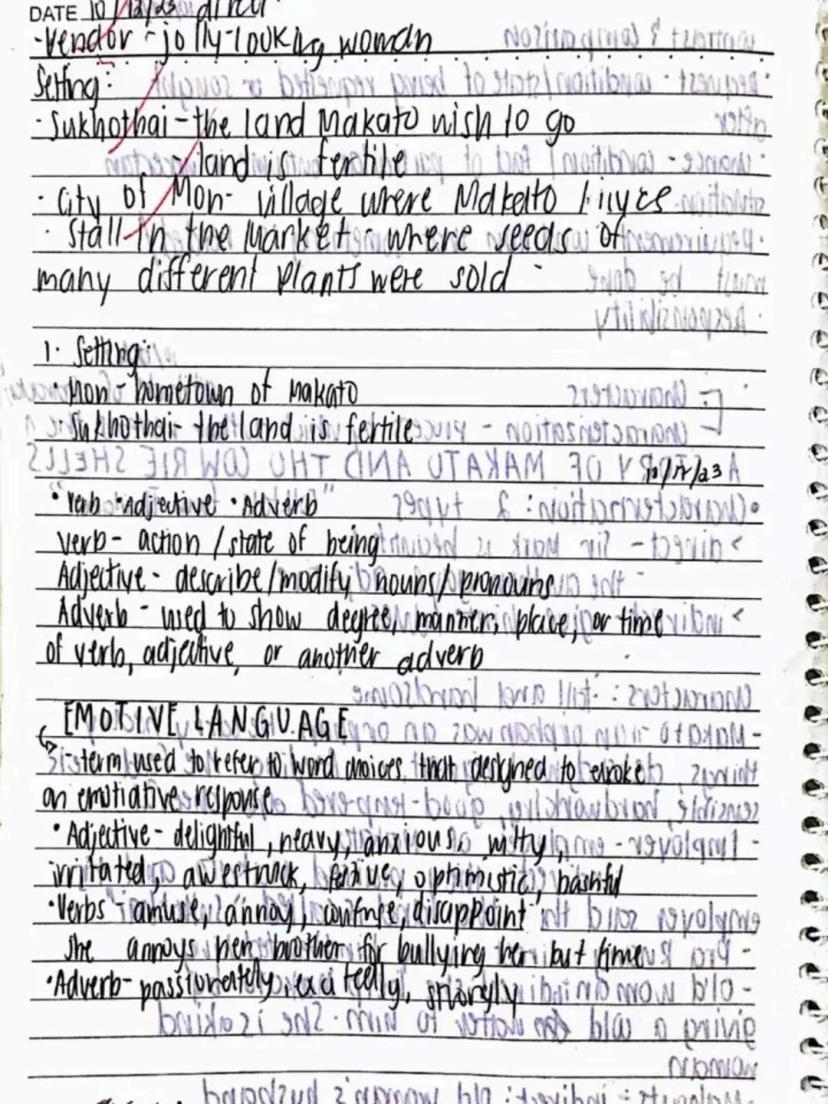 DATE 10/12/23 direct
-Vendor - jolly-looking woman
Setting:
· Sukhothai - the land Makato wish to go
- land is fertile
· City of Mon - village where Makato
· Stall in the Market - where seeds of
many different plants were sold
1. Setting:
· Mon - hometown of Makato
· Sukhothai - the land is fertile
10/12/23
• Verb • Adjective • Adverb
Verb - action / state of being
Adjective - describe/modify nouns/pronouns
Adverb - used to show degree, manner, place, or time
of verb, adjective, or another adverb
EMOTIVE LANGUAGE
term used to refer to word choices that designed to evoke
an emotiative response
• Adjective - delightful, heavy, anxious, witty,
irritated, awestruck, festive, optimistic, bashful
• Verbs - amuse, annoy, confuse, disappoint
She annoys her brother for bullying her but
• Adverb - passionately, strongly